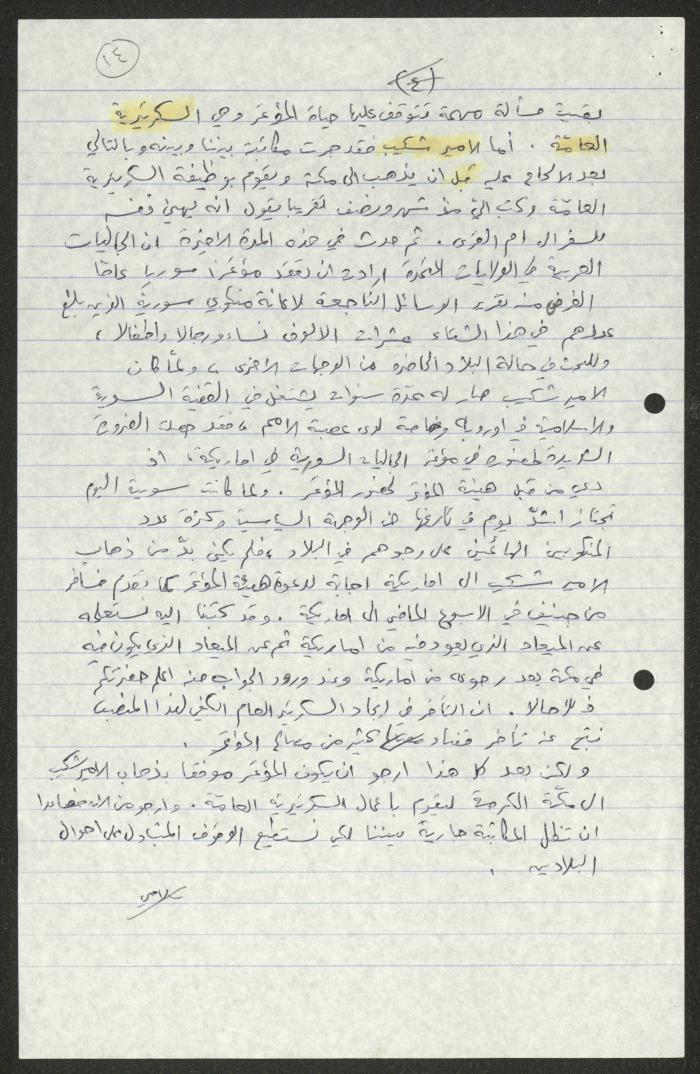 ١٤
(٤)
بقيت مسألة مهمة تتوقف عليها حياة المؤتمر وهي السكرتيرية
العامّة . أما الامير شكيب فقد جرت مكاتبة بيننا وبينه وبالتالي
بعد الالحاح عليه قبل ان يذهب الى مكة ويقوم بوظيفة السكرتيرية
العامّة وكتب اليّ منذ شهر ونصف تقريبا يقول انه يهيئ نفسه
للسفر الى ام القرى . ثم حدث في هذه المدة الاخيرة ان الجاليات
العربية في الولايات المتحدة ارادت ان تعقد مؤتمرا سوريا عامّا
الغرض منه تقرير الوسائل الناجعة لاعانة منكوبي سورية الذين بلغ
عددهم في هذا الشتاء عشرات الالوف نساء ورجالا واطفالا ،
وللبحث في حالة البلاد الحاضرة من الوجهات الاخرى ، ولمّا كان
الامير شكيب صار له عدّة سنوات يشتغل في القضية السورية
والاسلامية في اوروبا وخاصة لدى عصبة الامم ، فقد حصلت الضرورة
الشديدة لحضوره في مؤتمر الجاليات السورية في اماريكة ، اذ
دعي من قبل هيئة المؤتمر لحضور المؤتمر . ولما كانت سورية اليوم
تجتاز اشدّ يوم في تاريخها من الوجهة السياسية وكثرة عدد
المنكوبين الهائمين على وجوههم في البلاد ، فلم يكن بدّ من ذهاب
الامير شكيب الى اماريكة اجابة لدعوة هيئة المؤتمر كما تقدم فسافر
من جنيف في الاسبوع الماضي الى اماريكة . وقد كتبنا اليه نستعلمه
عن الميعاد الذي يعود فيه من اماريكة ثم عن الميعاد الذي يكون فيه
في مكة بعد رجوعه من اماريكة وعند ورود الجواب منه اعلم حضرتكم
به حالا . ان التأخر في ايجاد السكرتير العام الكفي لهذا المنصب
نتج عنه تأخر قضاء كثير من مصالح المؤتمر .
ولكن بعد كل هذا ارجو ان يكون المؤتمر موفقا بذهاب الامير شكيب
الى مكّة المكرمة ليقوم باعمال السكرتيرية العامّة . وارجو من الآن فصاعدا
ان تظل المكاتبة جارية بيننا لكي نستطيع الوقوف المتبادل على احوال
البلادين .
سلامي